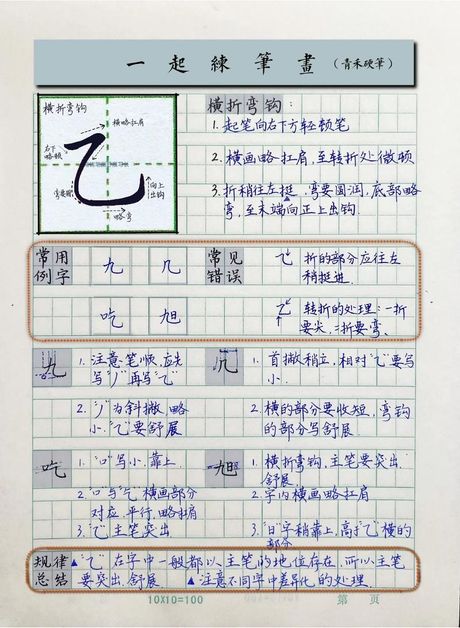 一起練筆畫（青禾硬筆）
横折弯钩
横略扛肩
右下略顿
弯要圆
略弯
向上出钩
横折弯钩：
1. 起笔向右下方轻顿笔
2. 横画略扛肩，至转折处微顿
3. 折稍往左挺，弯要圆润，底部略弯，至末端向正上出钩.
常用例字
九 几
吃 旭
常见错误
折的部分应往左稍挺进.
转折的处理：一折要尖，二折要弯.
九
1. 注意笔顺，应先写"丿"再写"乙"
2. "丿"为斜撇，略小，"乙"要舒展
几
1. 首撇稍立，相对"乙"要写小.
2. 横的部分要收短，弯钩的部分写舒展.
吃
1. "口"写小，靠上.
2. "口"与"乞"横画部分对应，平行，略扛肩
3. "乙"主笔突出
旭
1. 横折弯钩，主笔要突出，舒展.
2. 字内横画略扛肩
3. "日"字稍靠上，高于"乙"横的部分
规律总结
▲"乙"在字中一般都以主笔的地位存在，所以主笔要突出，舒展 ▲注意不同字中差异化的处理.
10X10=100
第 页